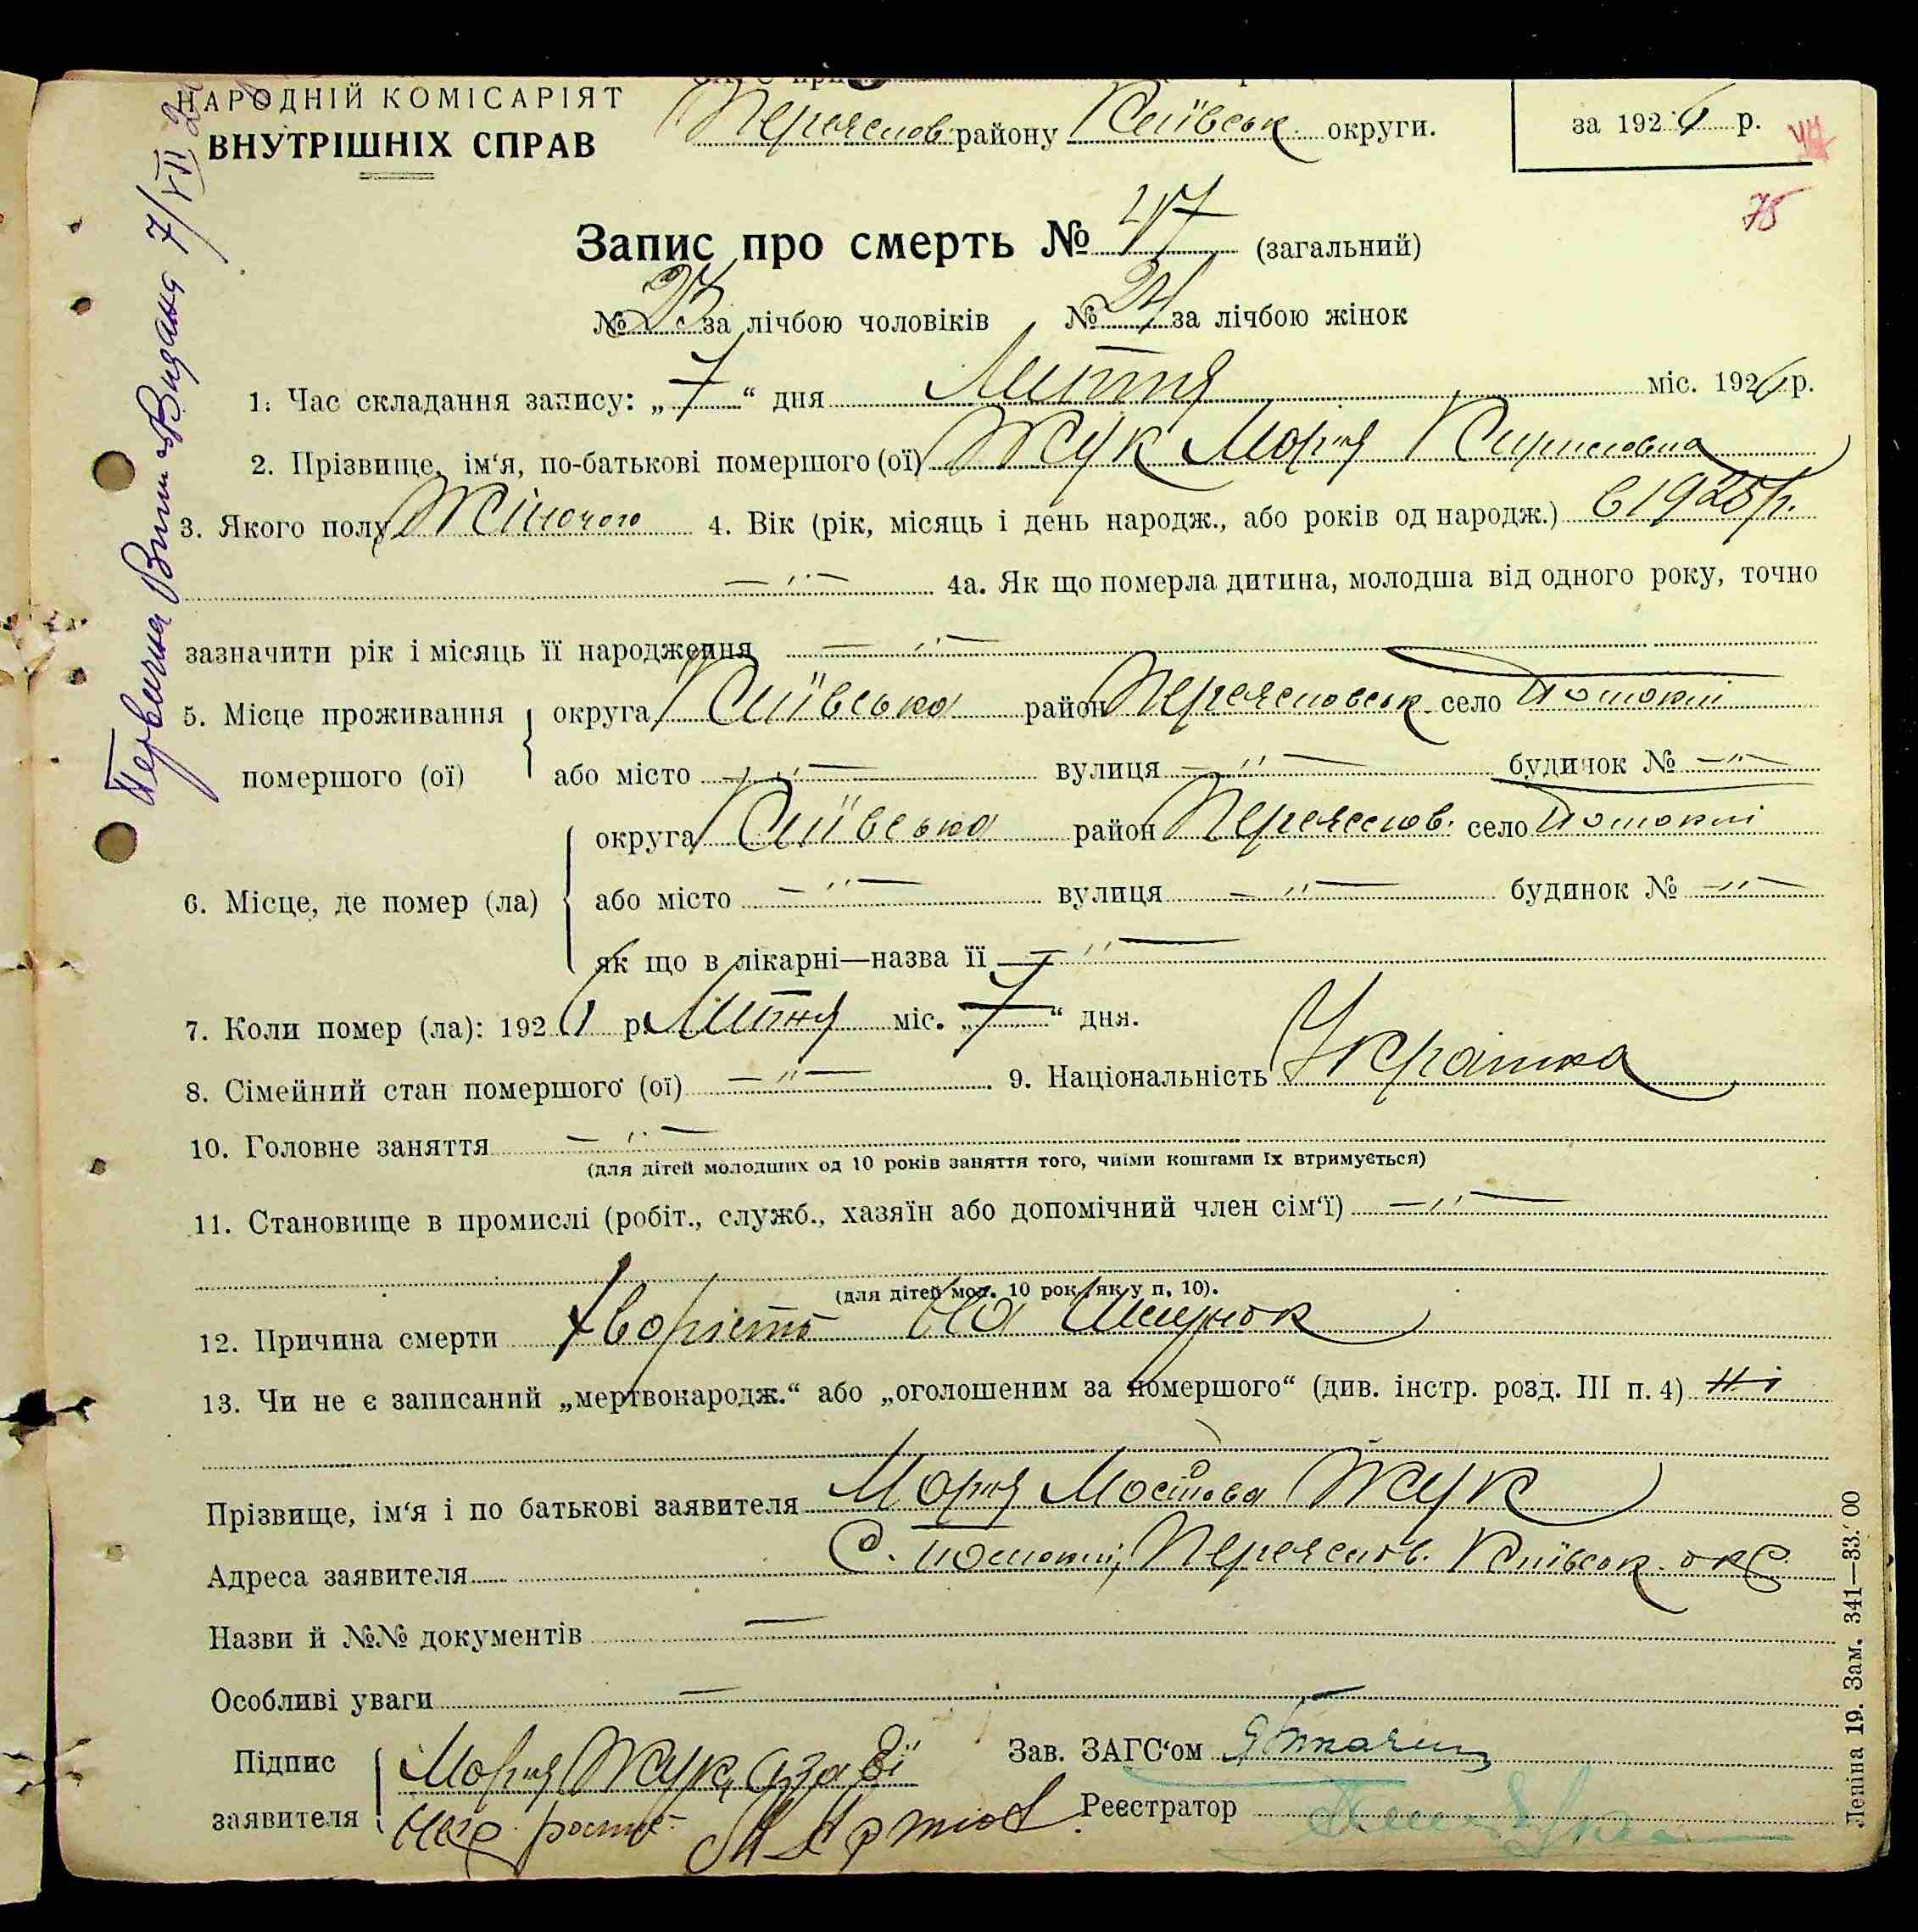 НАРОДНІЙ КОМІСАРІЯТ
ВНУТРІШНІХ СПРАВ
Переяслов. району Київськ. округи.
за 1926 р.
75
Запис про смерть № 47 (загальний)
№ 23 за лічбою чоловіків № 24 за лічбою жінок
1. Час складання запису: „7“ дня Липня міс. 1926 р.
2. Прізвище, ім‘я, по-батькові помершого (ої) Жук Марія Кириловна
3. Якого полу Жіночого 4. Вік (рік, місяць і день народж., або років од народж.) в 1925 р.
— " — 4а. Як що померла дитина, молодша від одного року, точно
зазначити рік і місяць її народження — " —
5. Місце проживання помершого (ої)
округа Київська район Переясловськ. село Потокки
або місто — " — вулиця — " — будинок № — " —
6. Місце, де помер (ла)
округа Київська район Переяслов. село Потокки
або місто — " — вулиця — " — будинок № — " —
як що в лікарні—назва її — " —
7. Коли помер (ла): 1926 р. Липня міс. „7“ дня.
8. Сімейний стан помершого (ої) — " — 9. Національність Українка
10. Головне заняття — " —
(для дітей молодших од 10 років заняття того, чиїми коштами їх втримується)
11. Становище в промислі (робіт., служб., хазяїн або допомічний член сім‘ї) — " —
(для дітей мол. 10 рок. як у п. 10).
12. Причина смерти Хворість на Шлунок
13. Чи не є записаний „мертвонародж.“ або „оголошеним за помершого“ (див. інстр. розд. III п. 4) Ні
Прізвище, ім‘я і по батькові заявителя Марія Жук
Адреса заявителя С. Потокки, Переяслов. Київськ. окр.
Назви й №№ документів —
Особливі уваги —
Підпис заявителя Марія Жук, а за її
Зав. ЗАГС‘ом
Реєстратор
Первична Видана 7/VII
Леніна 19. Зам. 341—33.‘00